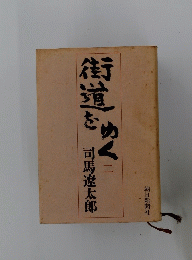 街道をゆく 二
司馬遼太郎
朝日新聞社